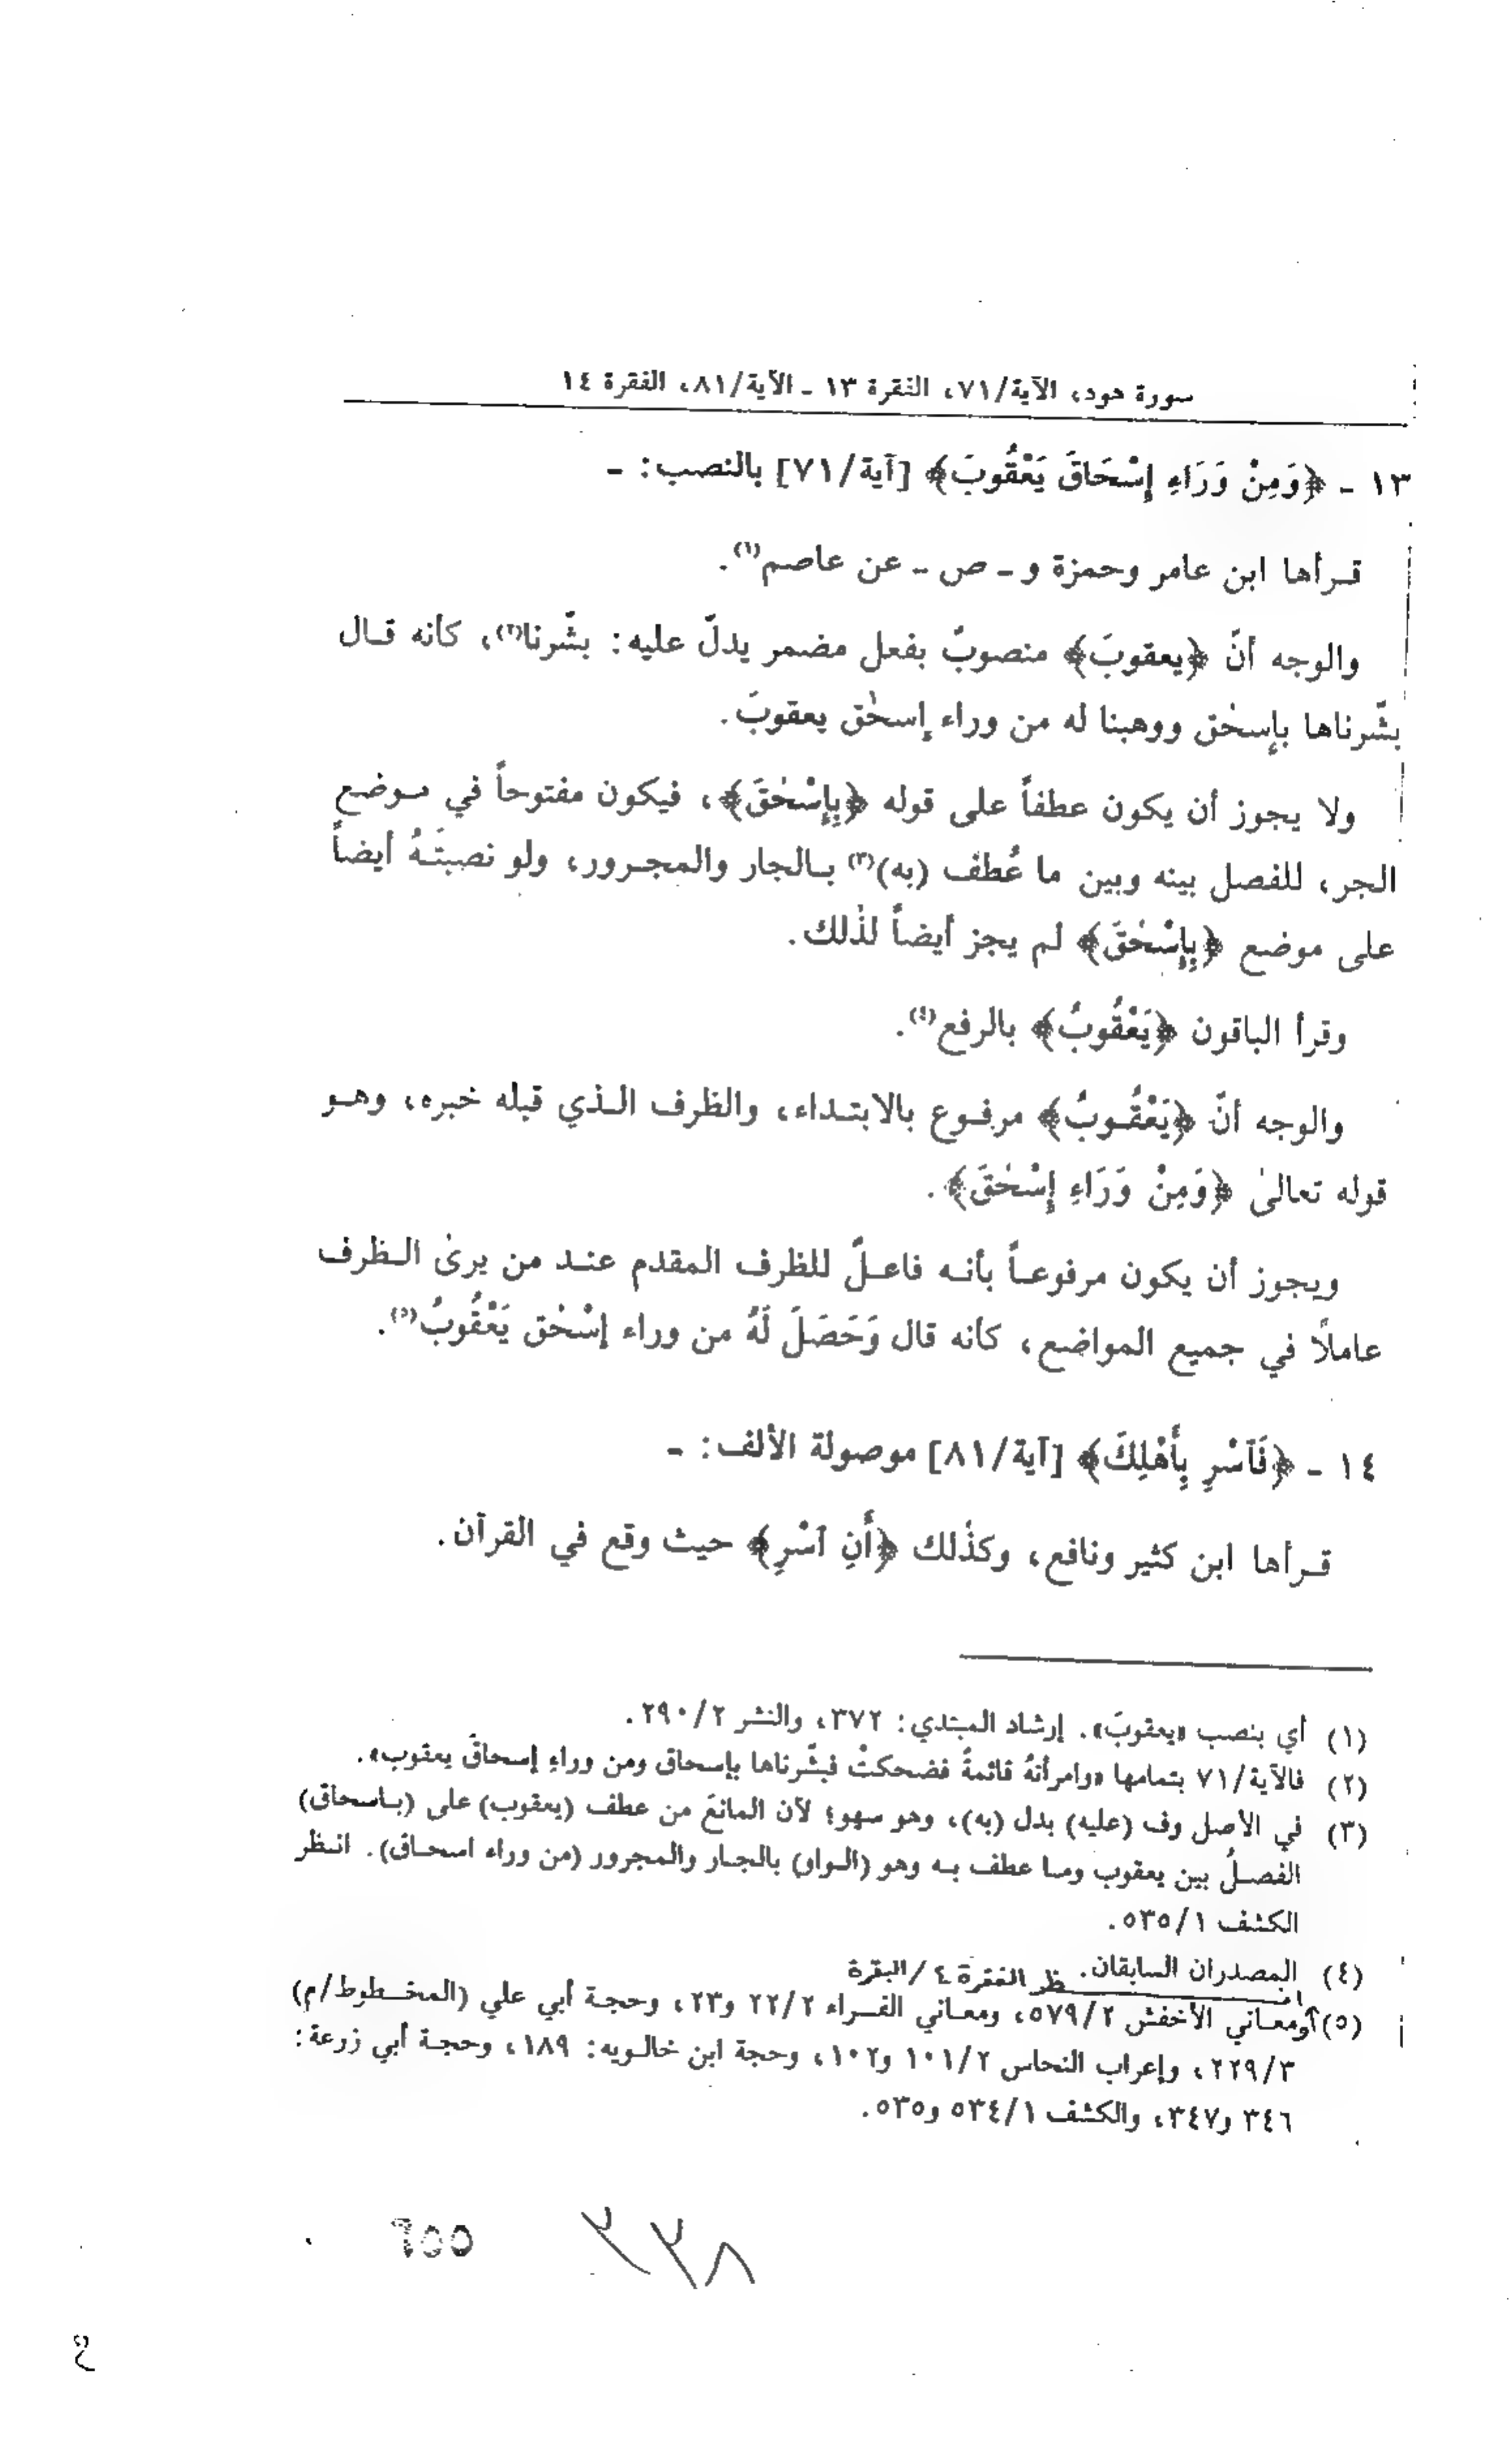 سورة هود، الآية/٧١، الفقرة ١٣ ـ الآية/٨١، الفقرة ١٤
١٣ ـ ﴿وَمِنْ وَرَاءِ إِسْحَاقَ يَعْقُوبَ﴾ [آية/٧١] بالنصب: ـ
قـرأها ابن عامر وحمزة و ـ ص ـ عن عاصم(١).
والوجه أنّ ﴿يعقوبَ﴾ منصوبٌ بفعل مضمر يدلّ عليه: بشّرنا(٢)، كأنه قـال
بشّرناها بإسحٰق ووهبنا له من وراء إسحٰق يعقوبَ.
ولا يجوز أن يكون عطفاً على قوله ﴿بِإِسْحٰقَ﴾، فيكون مفتوحاً في موضع
الجر، للفصل بينه وبين ما عُطف (به)(٣) بـالجار والمجـرور، ولو نصبتَـهُ أيضاً
على موضع ﴿بِإِسْحٰقَ﴾ لم يجز أيضاً لذٰلك.
وقرأ الباقون ﴿يَعْقُوبُ﴾ بالرفع(٤).
والوجه أنّ ﴿يَعْقُـوبُ﴾ مرفـوع بالابتـداء، والظرف الـذي قبله خبره، وهـو
قوله تعالىٰ ﴿وَمِنْ وَرَاءِ إِسْحٰقَ﴾.
ويجوز أن يكون مرفوعـاً بأنـه فاعـلٌ للظرف المقدم عنـد من يرىٰ الـظرف
عاملًا في جميع المواضع، كأنه قال وَحَصَلَ لَهُ من وراء إسْحٰق يَعْقُوبُ(٥).
١٤ ـ ﴿فَآسْرِ بِأَهْلِكَ﴾ [آية/٨١] موصولة الألف: ـ
قـرأها ابن كثير ونافع، وكذٰلك ﴿أَنِ آسْرِ﴾ حيث وقع في القرآن.
(١) أي بنصب «يعقوبَ». إرشاد المبتدي: ٣٧٢، والنشر ٢/٢٩٠.
(٢) فالآية/٧١ بتمامها «وامرأتهُ قائمةٌ فضحكتْ فبشّرناها بإسحاق ومن وراءِ إسحاقَ يعقوب».
(٣) في الأصل وف (عليه) بدل (به)، وهو سهو؛ لأن المانعَ من عطف (يعقوب) على (بـاسحاق)
الفصـلُ بين يعقوب ومـا عطف بـه وهو (الـواو) بالجـار والمجرور (من وراء اسحـاق). انـظر
الكشف ١/٥٣٥.
(٤) المصدران السابقان.
انـظر الفقرة ٤/البقرة
(٥) ومعـاني الأخفش ٢/٥٧٩، ومعـاني الفـراء ٢/٢٢ و٢٣، وحجـة أبي علي (المخـطوط/م)
٣/٢٢٩، وإعراب النحاس ٢/١٠١ و١٠٢، وحجة ابن خالـويه: ١٨٩، وحجـة أبي زرعة:
٣٤٦ و٣٤٧، والكشف ١/٥٣٤ و٥٣٥.
٦٥٥
٣٣٨